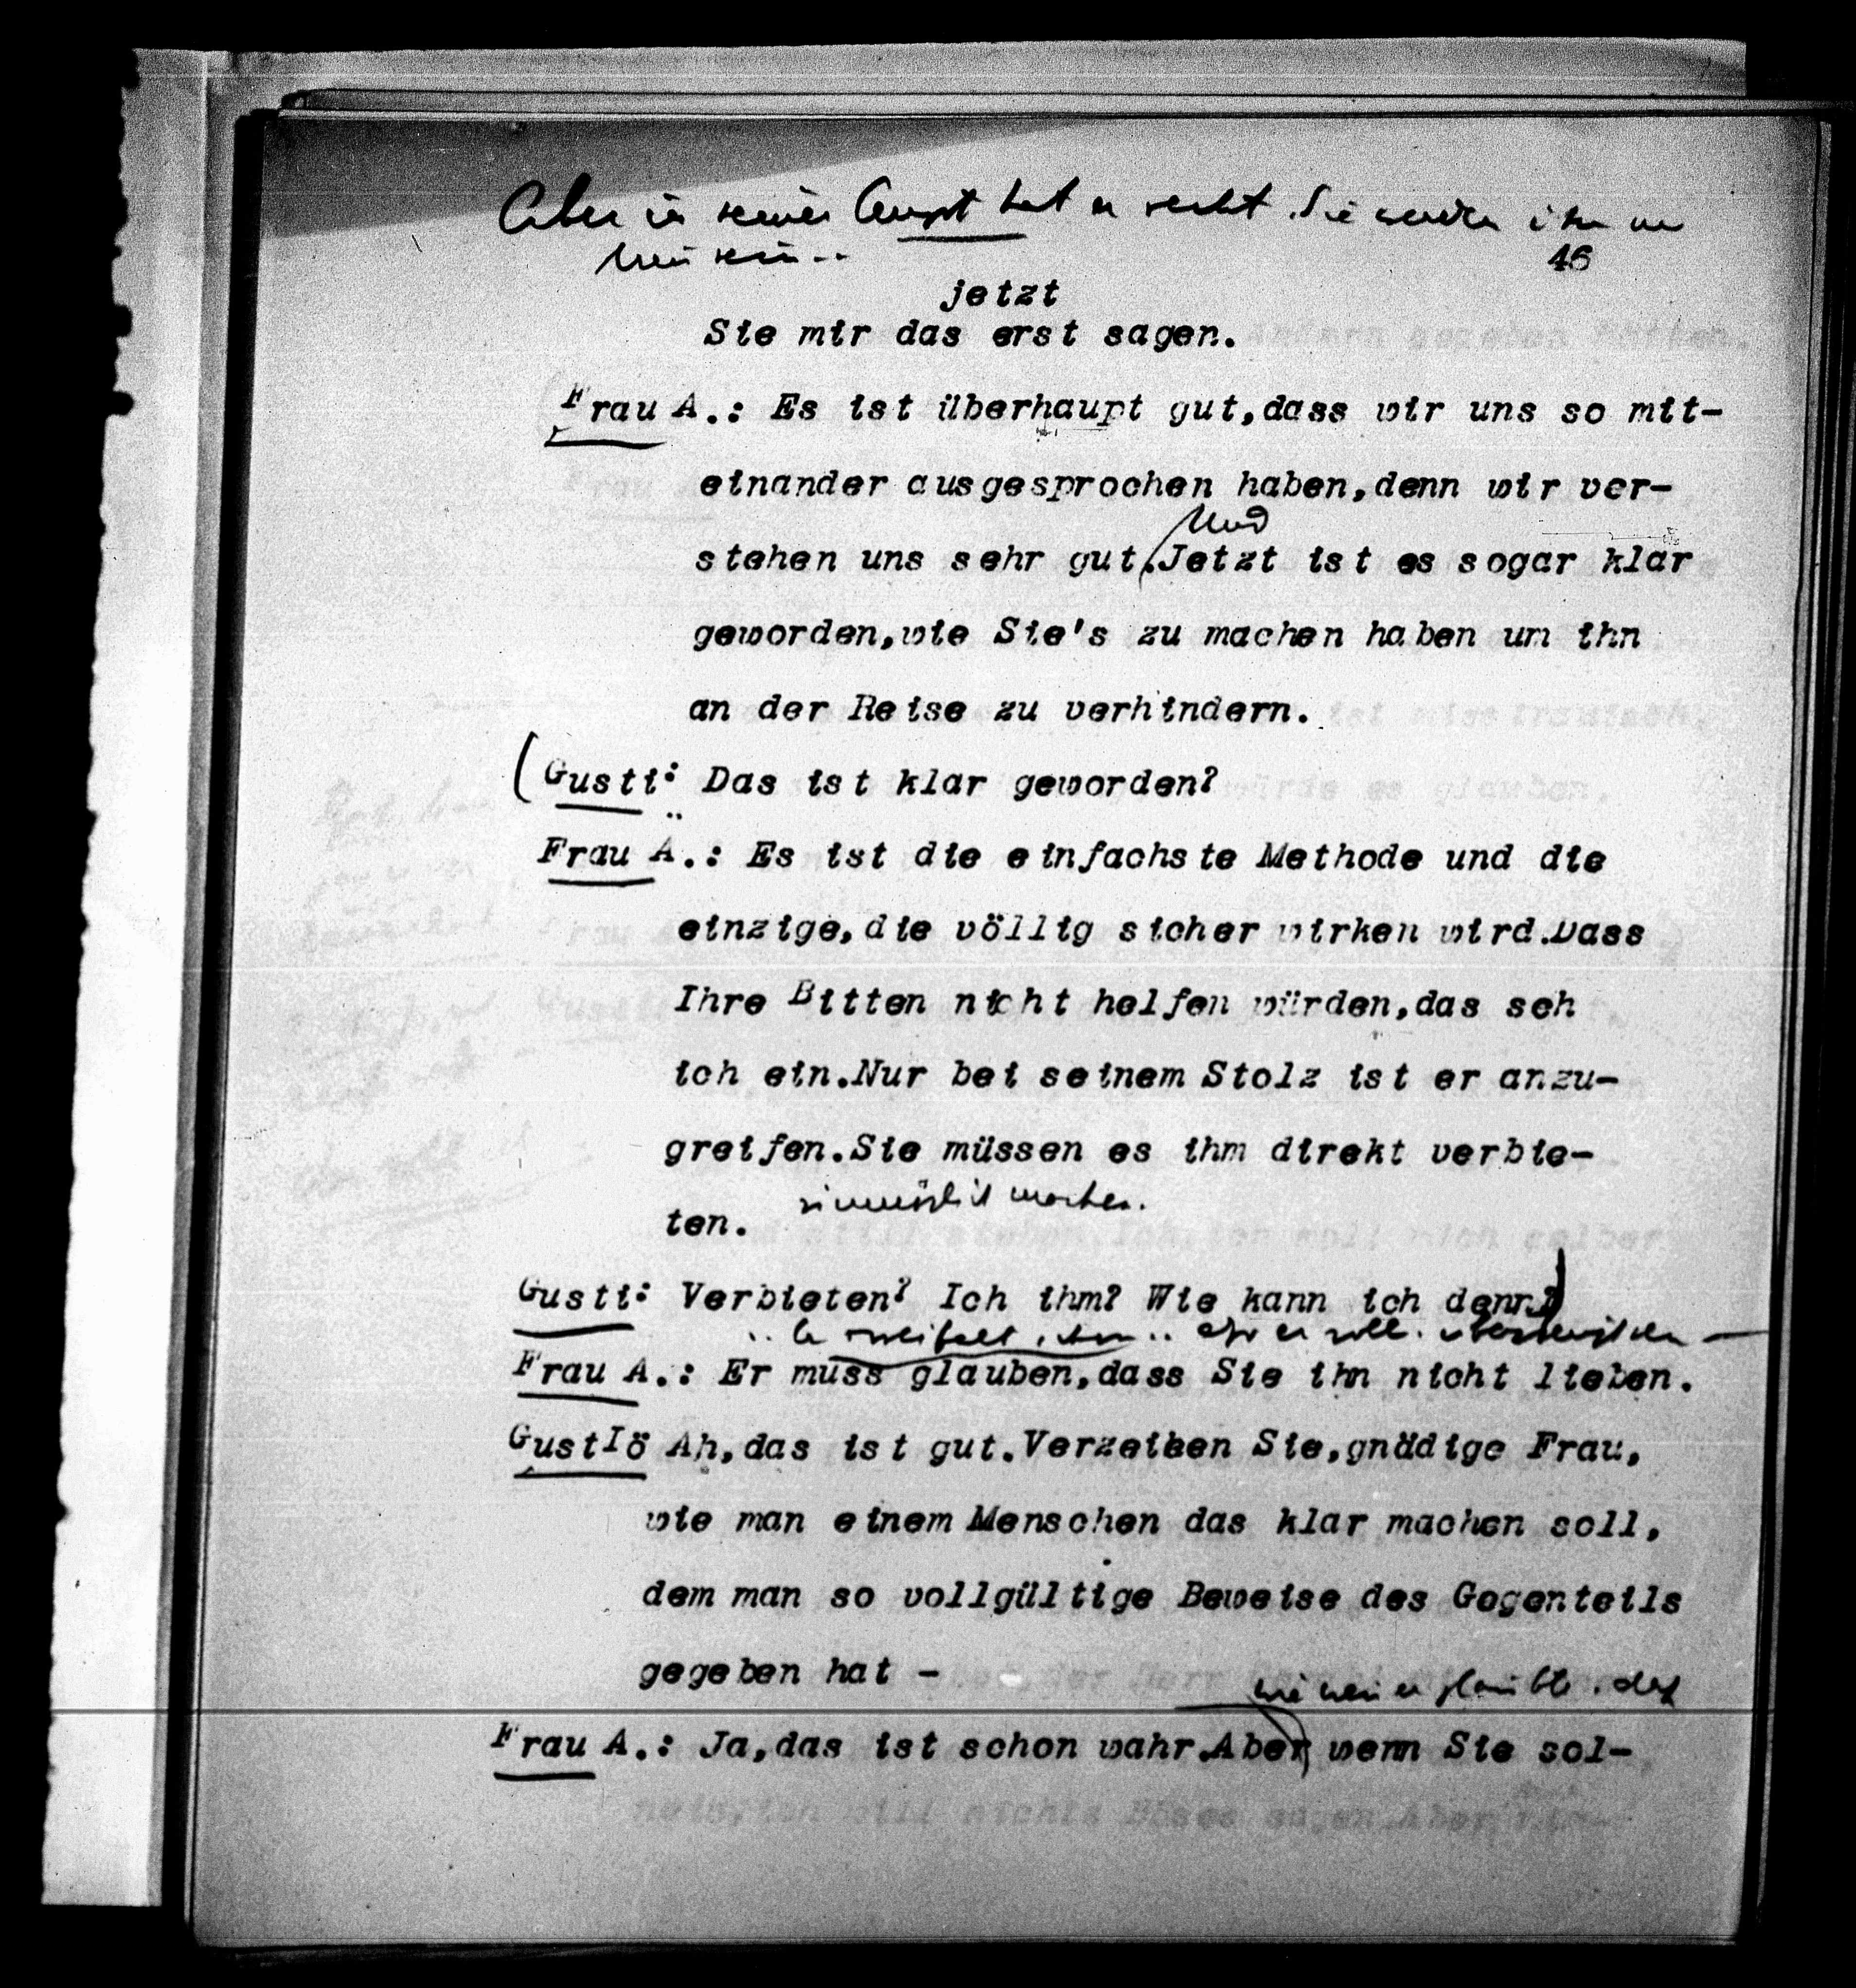 Aber in seiner Angst hat er recht. Sie werden ihm un
treu sein..
46
jetzt
Sie mir das erst sagen.
Frau A.: Es ist überhaupt gut,dass wir uns so mit-
einander ausgesprochen haben,denn wir ver-
Und
stehen uns sehr gut.Jetzt ist es sogar klar
geworden,wie Sie's zu machen haben um ihn
an der Reise zu verhindern.
(Gusti: Das ist klar geworden?
Frau A.: Es ist die einfachste Methode und die
einzige,die völlig sicher wirken wird.Dass
Ihre Bitten nicht helfen würden,das seh
ich ein.Nur bei seinem Stolz ist er anzu-
greifen.Sie müssen es ihm direkt verbie-
unmöglich machen.
ten.
Gusti: Verbieten? Ich ihm? Wie kann ich denn?)
Er zweifelt schon .. er soll
Frau A.: Er muss glauben,dass Sie ihn nicht lieben.
GustIö Ah,das ist gut.Verzeihen Sie,gnädige Frau,
wie man einem Menschen das klar machen soll,
dem man so vollgültige Beweise des Gegenteils
gegeben hat -
wenn er glaubte, daß
Frau A.: Ja,das ist schon wahr.Aber wenn Sie sol-